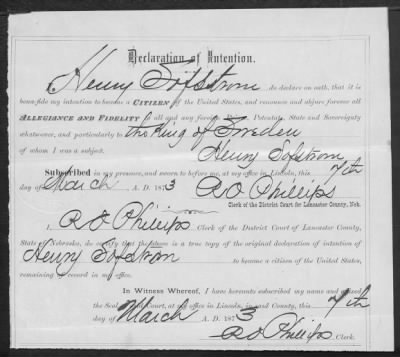 Declaration of Intention.
Henry Sofstrom, do declare on oath, that it is
bona-fide my intention to become a CITIZEN of the United States, and renounce and abjure forever all
ALLEGIANCE AND FIDELITY to all and any foreign Prince, Potentate, State and Sovereignty
whatsoever, and particularly to the King of Sweden
of whom I was a subject.
Henry Sofstrom
Subscribed in my presence, and sworn to before me, at my office in Lincoln, this 7th
day of March A. D. 1873
R O Phillips
Clerk of the District Court for Lancaster County, Neb.
I, R O Phillips, Clerk of the District Court of Lancaster County,
State of Nebraska, do certify that the above is a true copy of the original declaration of intention of
Henry Sofstrom to become a citizen of the United States,
remaining of record in my office.
In Witness Whereof, I have hereunto subscribed my name and affixed
the Seal of said Court, at my office in Lincoln, in said County, this 7th
day of March A. D. 1873
R O Phillips Clerk.